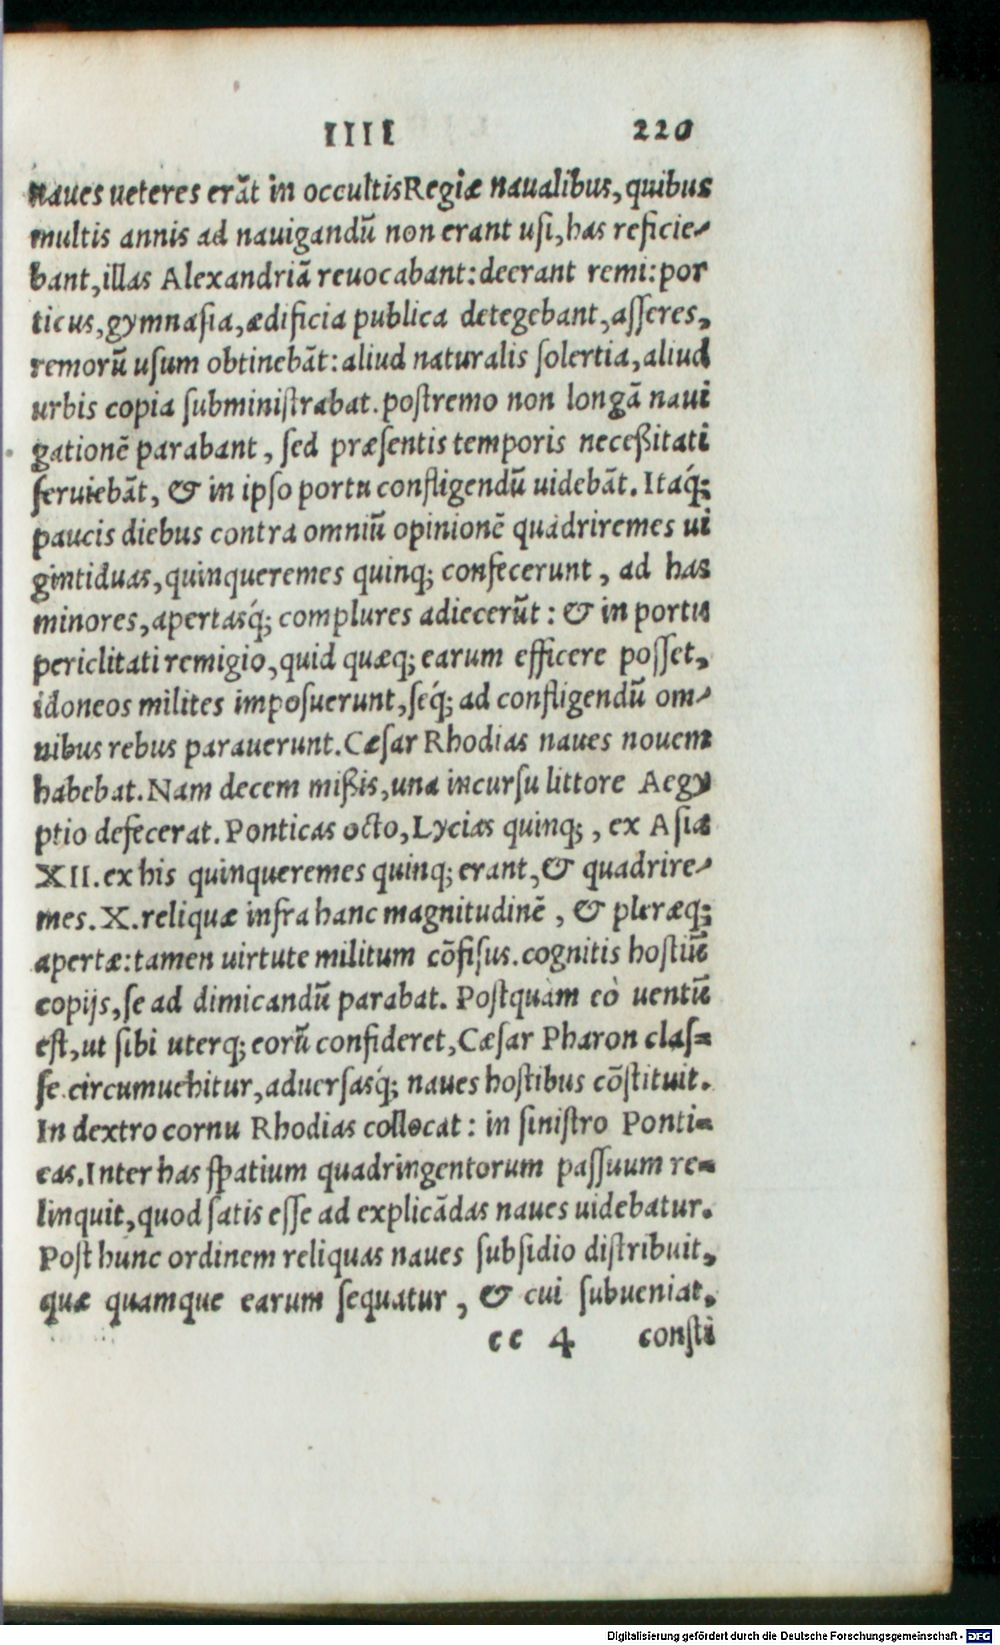 IIII 220
naues ueteres erāt in occultis Regiæ naualibus, quibus
multis annis ad nauigandū non erant usi, has reficie-
bant, illas Alexandriā reuocabant: deerant remi: por
ticus, gymnasia, ædificia publica detegebant, asseres,
remorū usum obtinebāt: aliud naturalis solertia, aliud
urbis copia subministrabat. postremo non longā naui
gationē parabant, sed præsentis temporis neceßitati
seruiebāt, & in ipso portu confligendū uidebāt. Itaq́;
paucis diebus contra omniū opinionē quadriremes ui
gintiduas, quinqueremes quinq; confecerunt, ad has
minores, apertasq́; complures adiecerūt: & in portu
periclitati remigio, quid quæq; earum efficere posset,
idoneos milites imposuerunt, seq́; ad confligendū om-
nibus rebus parauerunt. Cæsar Rhodias naues nouem
habebat. Nam decem mißis, una in cursu littore Aegy
ptio defecerat. Ponticas octo, Lycias quinq;, ex Asia
XII. ex his quinqueremes quinq; erant, & quadrire-
mes. X. reliquæ infra hanc magnitudinē, & pleræq;
apertæ: tamen uirtute militum cōfisus. cognitis hostiū
copijs, se ad dimicandū parabat. Postquàm eò uentū
est, ut sibi uterq; eorū confideret, Cæsar Pharon clas-
se circumuehitur, aduersasq́; naues hostibus cōstituit.
In dextro cornu Rhodias collocat: in sinistro Ponti-
cas. Inter has spatium quadringentorum passuum re-
linquit, quod satis esse ad explicādas naues uidebatur.
Post hunc ordinem reliquas naues subsidio distribuit,
quæ quamque earum sequatur, & cui subueniat,
cc 4 consti
Digitalisierung gefördert durch die Deutsche Forschungsgemeinschaft - DFG